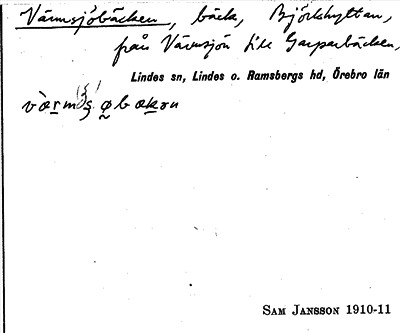 Värmsjöbäcken, bäck, Björkhyttan,
från Värmsjön till Gasparbäcken,
Lindes sn, Lindes o. Ramsbergs hd, Örebro län
SAM JANSSON 1910-11